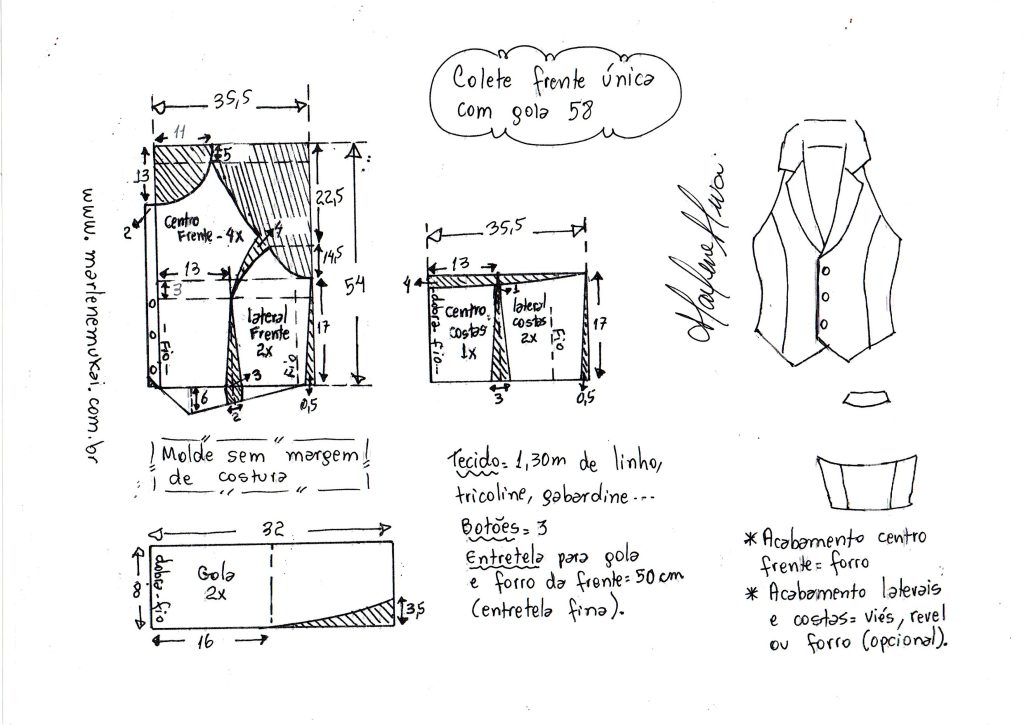 Colete frente única
com gola 58
www.marlenemukai.com.br
35,5
11
5
13
2
22,5
Centro
Frente - 4x
4
14,5
54
13
3
17
lateral
Frente
2x
Fio
Fio
3
6
2
0,5
35,5
13
4
1
dobra-fio
Centro
costas
1x
lateral
costas
2x
Fio
17
3
0,5
Molde sem margem
de costura
32
8
dobra-fio
Gola
2x
3,5
16
Tecido= 1,30m de linho,
tricoline, gabardine...
Botões= 3
Entretela para gola
e forro da frente= 50cm
(entretela fina).
* Acabamento centro
frente= forro
* Acabamento laterais
e costas= viés, revel
ou forro (opcional).